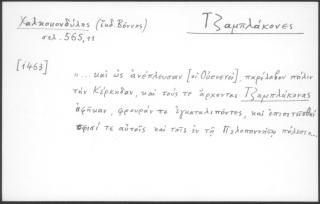 Χαλκοκονδύλης (ἔκδ. Βόννης)
Τζαμπλάκονες
σελ. 565,11
[1463]
"... καὶ ὡς ἀνέπλευσαν [οἱ Οὐενετοί], παρέλαβον πόλιν
τὴν Κέρκηθον, καὶ τούς τε ἄρχοντας Τζαμπλάκονας
ἀφῆκαν, φρουράν τε ἐγκαταλιπόντες, καὶ
σφίσι τε αὐτοῖς καὶ ταῖς ἐν τῇ Πελοποννήσῳ πόλεσι...